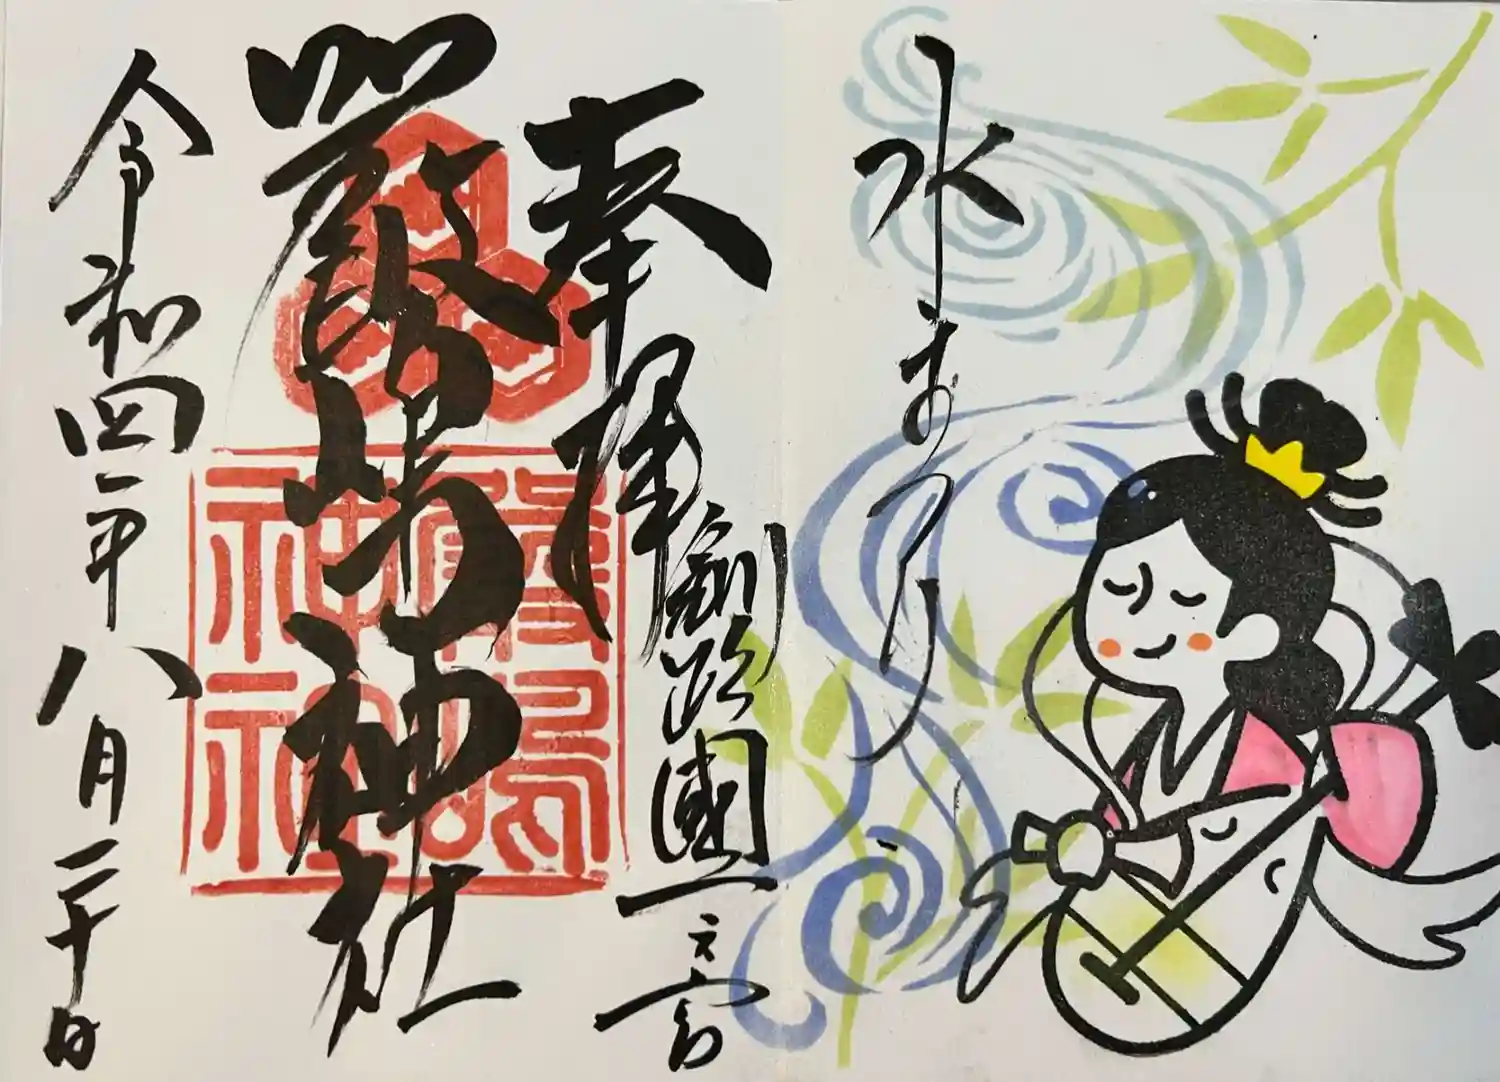 水まつり
奉拝
釧路國一之宮
厳島神社
嚴島神社
令和四年八月二十日